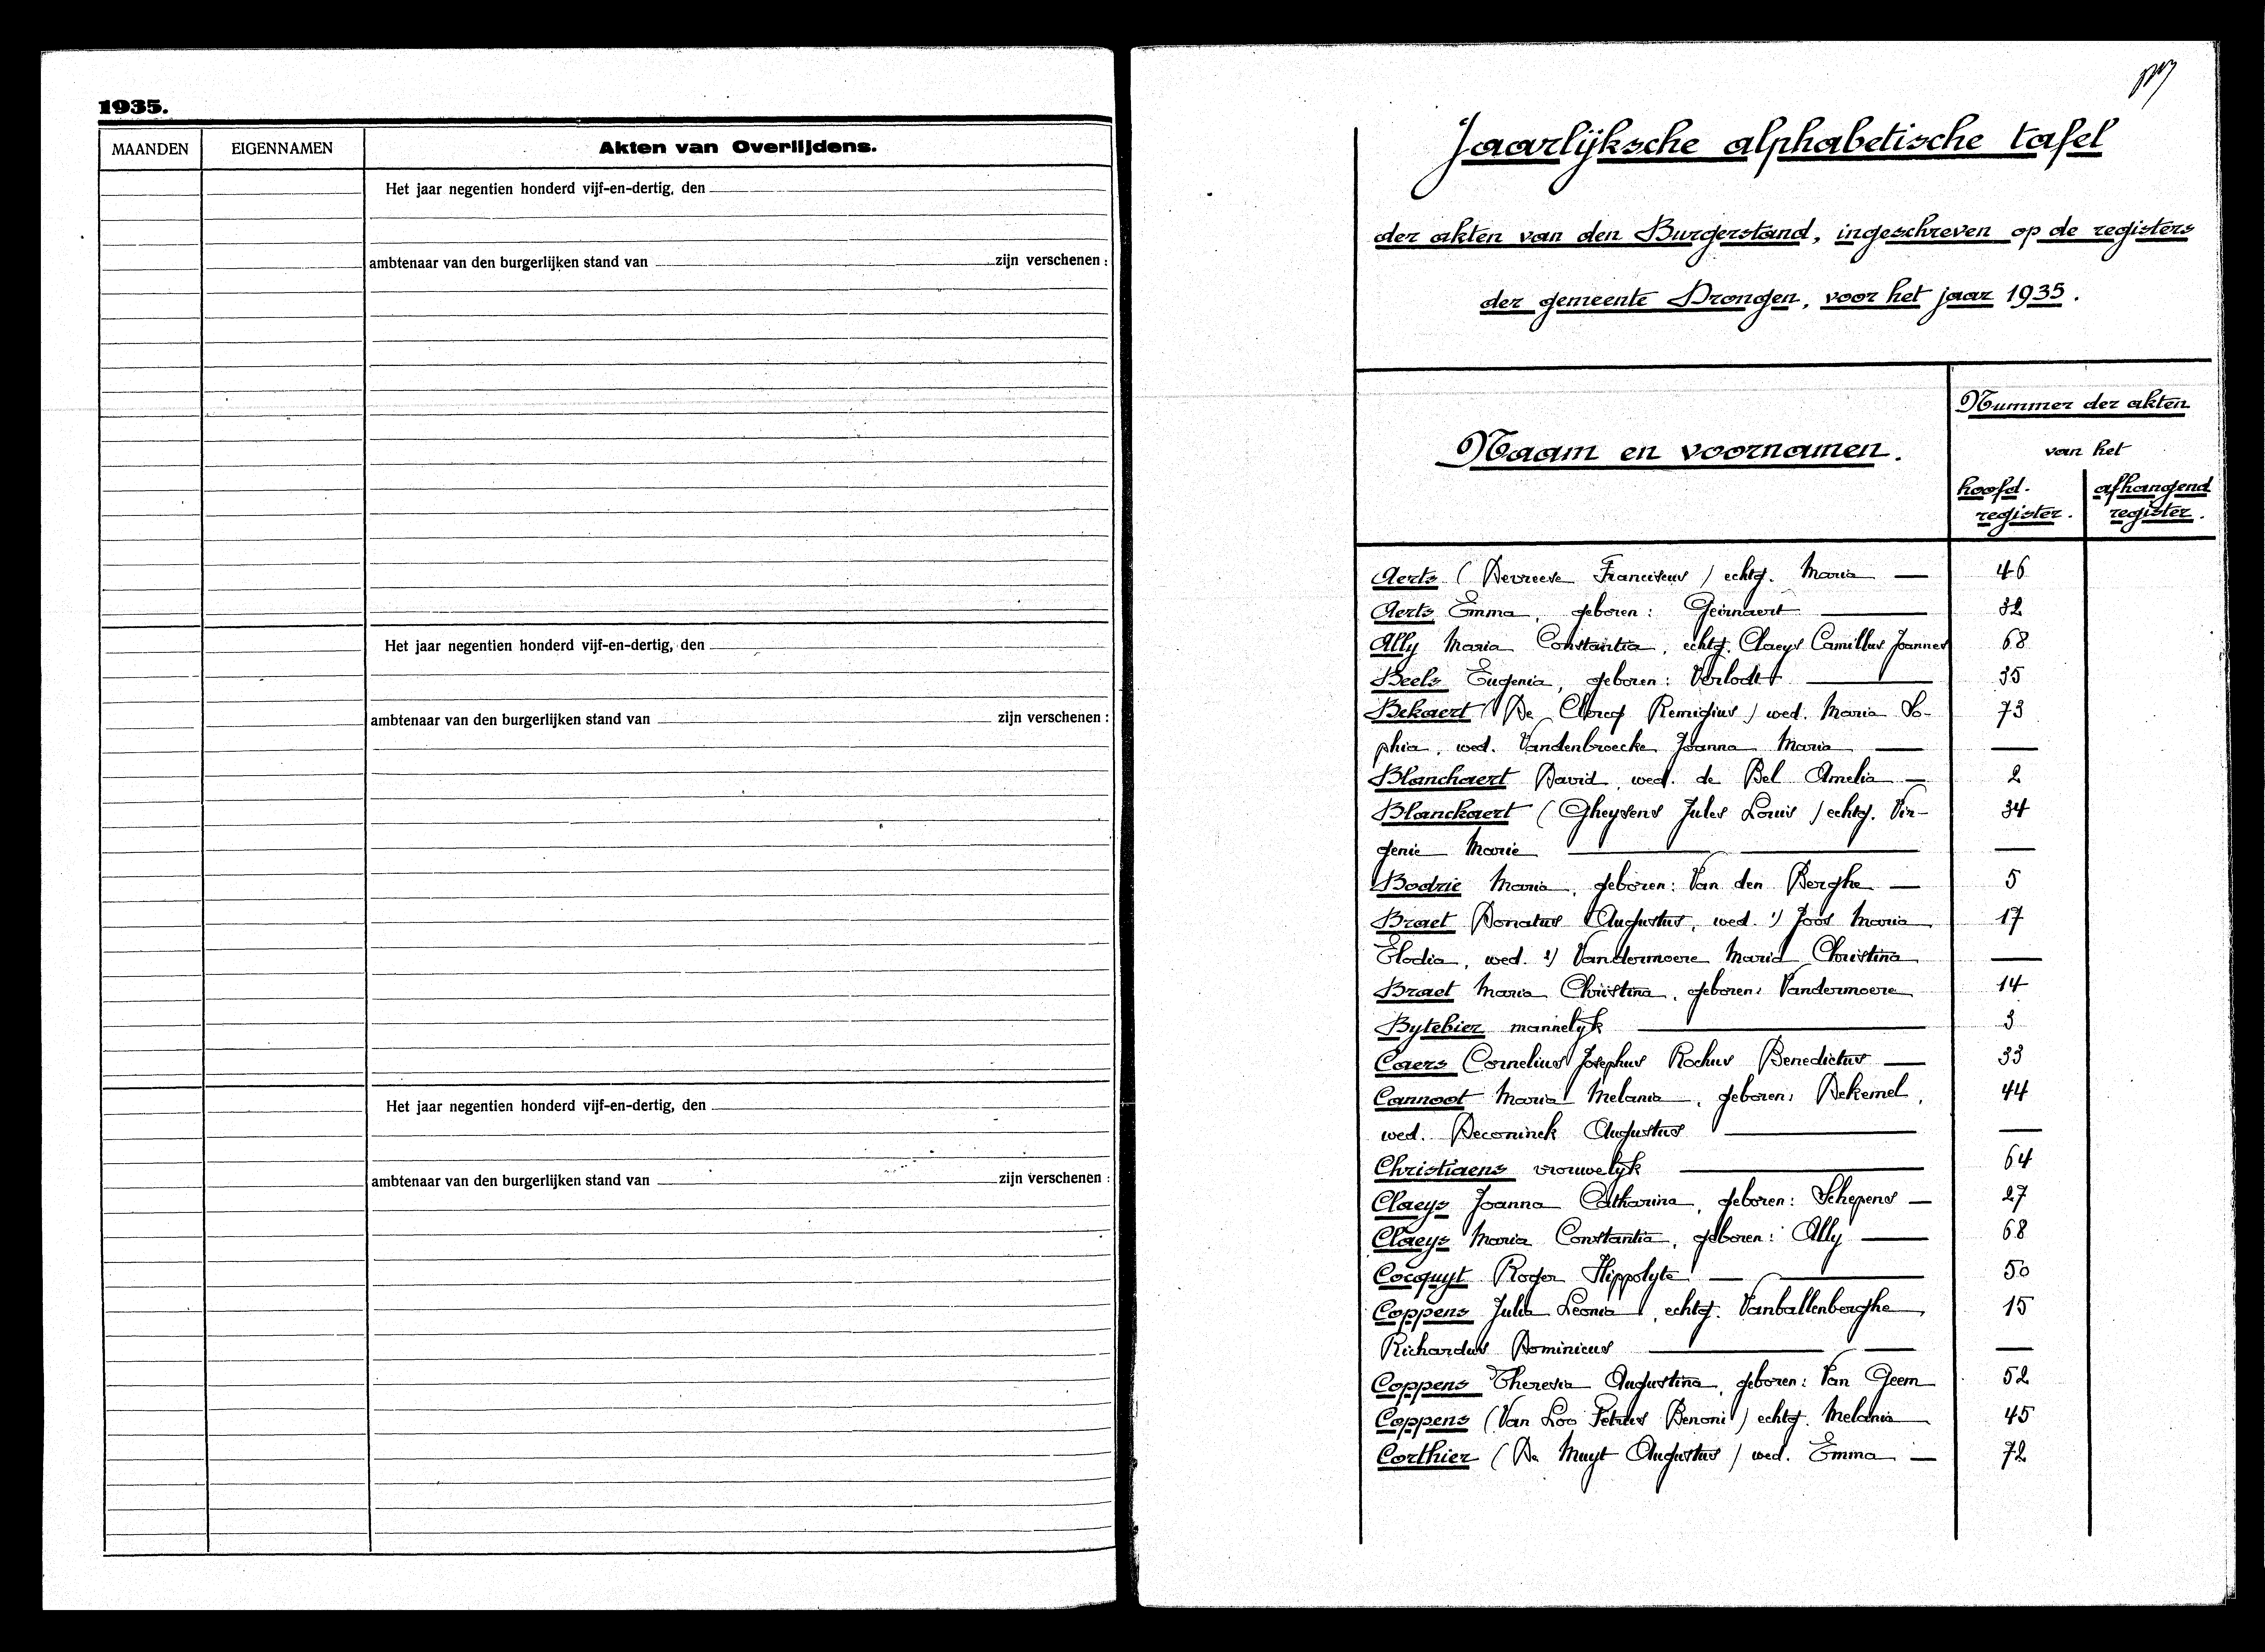 1935.
MAANDEN EIGENNAMEN Akten van Overlijdens.
Het jaar negentien honderd vijf-en-dertig, den
ambtenaar van den burgerlijken stand van zijn verschenen :
Het jaar negentien honderd vijf-en-dertig, den
ambtenaar van den burgerlijken stand van zijn verschenen :
Het jaar negentien honderd vijf-en-dertig, den
ambtenaar van den burgerlijken stand van zijn verschenen :
Jaarlijksche alphabetische tafel
der akten van den Burgerstand, ingeschreven op de registers
der gemeente Drongen, voor het jaar 1935.
Naam en voornamen.
Nummer der akten
van het
hoofd-register. afhangend register.
Aerts (Devreese Franciscus) echtg. Maria — 46
Aerts Emma, geboren: Geirnaert — 32
Ally Maria Constantia, echtg. Claeys Camillus Joannes 68
Beels Eugenia, geboren: Verlodt — 35
Bekaert (De Clercq Remigius) wed. Maria So- 73
phia, wed. Vandenbroecke Joanna Maria — —
Blanchaert David, wed. de Bel Amelia — 2
Blanckaert (Gheysens Jules Louis) echtg. Vir- 34
genie Marie — —
Bodrie Maria, geboren: Van den Berghe — 5
Braet Donatus Augustus, wed. 1) Joos Maria 17
Elodia, wed. 2) Vandermoere Maria Christina —
Braet Maria Christina, geboren: Vandermoere 14
Bytebier mannelyk — 3
Caers Cornelius Josephus Rochus Benedictus — 33
Cannoot Maria Melania, geboren: Dekemel, 44
wed. Deconinck Augustus — —
Christiaens vrouwelyk — 64
Claeys Joanna Catharina, geboren: Schepens — 27
Claeys Maria Constantia, geboren: Ally — 68
Cocquyt Roger Hippolyte — 50
Coppens Julia Leonia, echtg. Vanballenberghe 15
Richardus Dominicus — —
Coppens Theresia Augustina, geboren: Van Geem 52
Coppens (Van Loo Petrus Benoni) echtg. Melania 45
Corthier (De Muyt Augustus) wed. Emma — 72